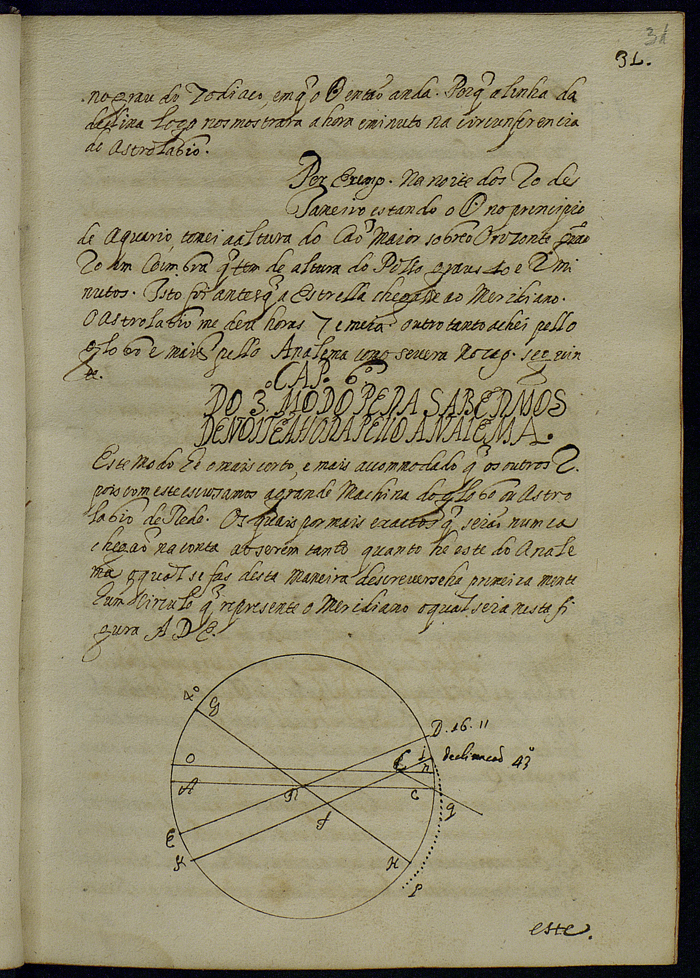 31
31.
no grau do Zodiaco, em q̃ o ☉ entaõ anda. Porq̃ a linha da
logo nos mostrara a hora e minuto na circunferencia
do Astrolabio.
Per Exemp. Na noite dos 20 de
Janeiro estando o ☉ no principio
de Aquario, tomei a altura do Caõ Maior sobre o Orizonte
20 em Coimbra q̃ tem de altura do Pollo graus 40 e 2 mi
nutos. Isto foi antes q̃ a Estrella chegasse ao Meridiano.
O Astrolabio me deu horas 7 e meia. outro tanto achei pello
globo e mais pello Analema como se vera no cap. seguin
te.
CAP. 6º
DO 3. MODO PERA SABERMOS
DE NOITE A HORA PELLO ANALEMA.
Este modo he o mais certo, e mais accommodado q̃ os outros 2.
pois com este escusamos a grande Machina do globo ou Astro
labio de Rede. Os quais por mais exactos q̃ sejaõ nunca
chegaõ na conta a o serem tanto quanto he este do Anale
ma o qual se fas desta maneira descreverseha primeira mente
hum Circulo q̃ represente o Meridiano o qual seja nesta fi
gura A D C.
4º
G
D. 16. 11
O
I
n
declinacaõ 43º
A
E
C
R
q
f
E
K
H
P
este.